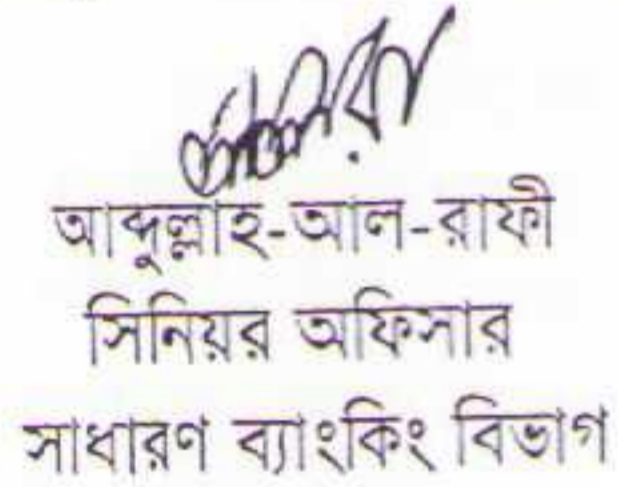 আব্দুল্লাহ-আল-রাফী
সিনিয়র অফিসার
সাধারণ ব্যাংকিং বিভাগ